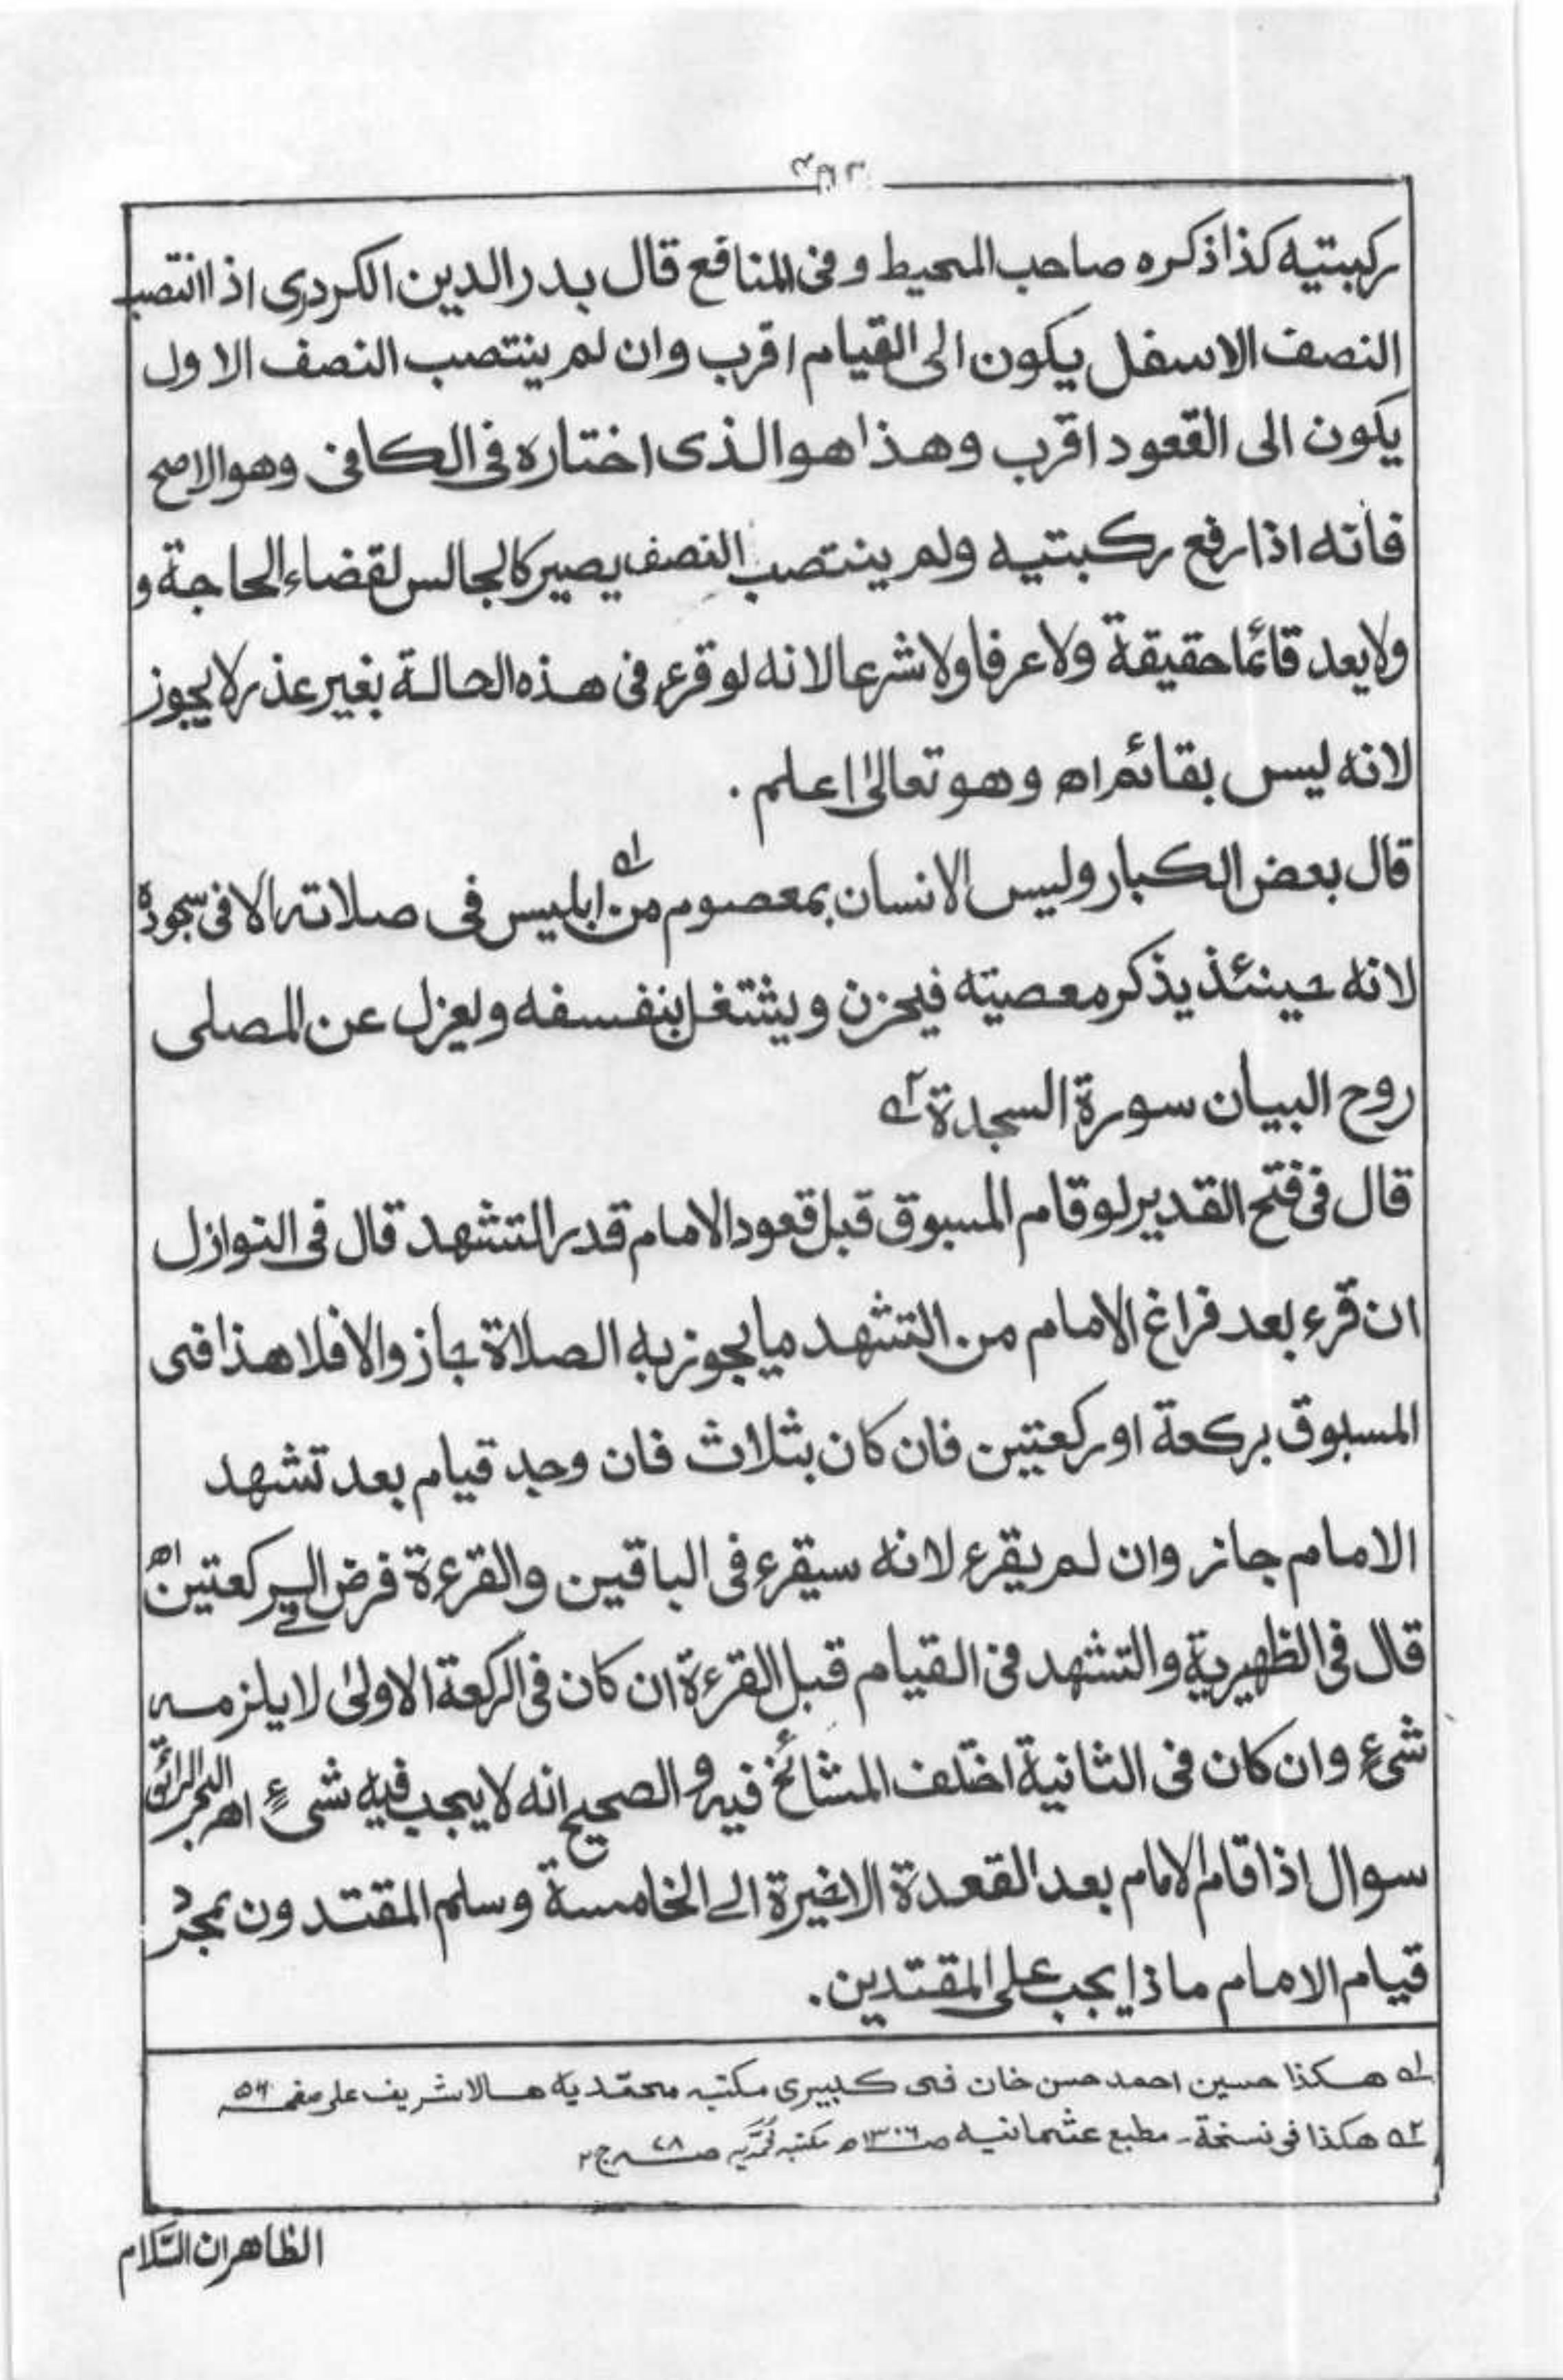 ركبتيه كذا ذكره صاحب المحيط وفى المنافع قال بدر الدين الكردرى اذا انتصب
النصف الاسفل يكون الى القيام اقرب وان لم ينتصب النصف الاول
يكون الى القعود اقرب وهذا هو الذى اختاره فى الكافى وهو الاصح
فانه اذا رفع ركبتيه ولم ينتصب النصف يصير كالجالس لقضاء الحاجة و
ولا يعد قائما حقيقة ولا عرفا ولا شرعا لانه لو قرء فى هذه الحالة بغير عذر لا يجوز
لانه ليس بقائم اه وهو تعالىٰ اعلم .
قال بعض الكبار وليس الانسان بمعصوم من ابليس فى صلاته الا فى سجوده
لانه حينئذ يذكر معصيته فيحزن ويشتغل بنفسه ويعزل عن المصلى
روح البيان سورة السجدة ٢ه
قال فى فتح القدير لو قام المسبوق قبل قعود الامام قدر التشهد قال فى النوازل
ان قرء بعد فراغ الامام من التشهد ما يجوز به الصلاة جاز والا فلا هذا فى
المسبوق بركعة او ركعتين فان كان بثلاث فان وجد قيام بعد تشهد
الامام جاز وان لم يقرء لانه سيقرء فى الباقين والقرءة فرض الركعتين اه
قال فى الظهيرية والتشهد فى القيام قبل القرءة ان كان فى الركعة الاولىٰ لا يلزمه
شىء وان كان فى الثانية اختلف المشائخ فيه والصحيح انه لا يجب فيه شىء اه البحر الرائق
سوال اذا قام الامام بعد القعدة الاخيرة الے الخامسة وسلم المقتدون بمجرد
قيام الامام ماذا يجب على المقتدين .
١ه هكذا حسين احمد حسن خان فى كبيرى مكتبه محمديه هالا شريف على صفحه ٥٦
٢ه هكذا فى نسخة۔ مطبع عثمانيه ١٣٠٦ه مكتبه محمديه صـ ٢٨ ج ٢
الظاهر ان السّلام